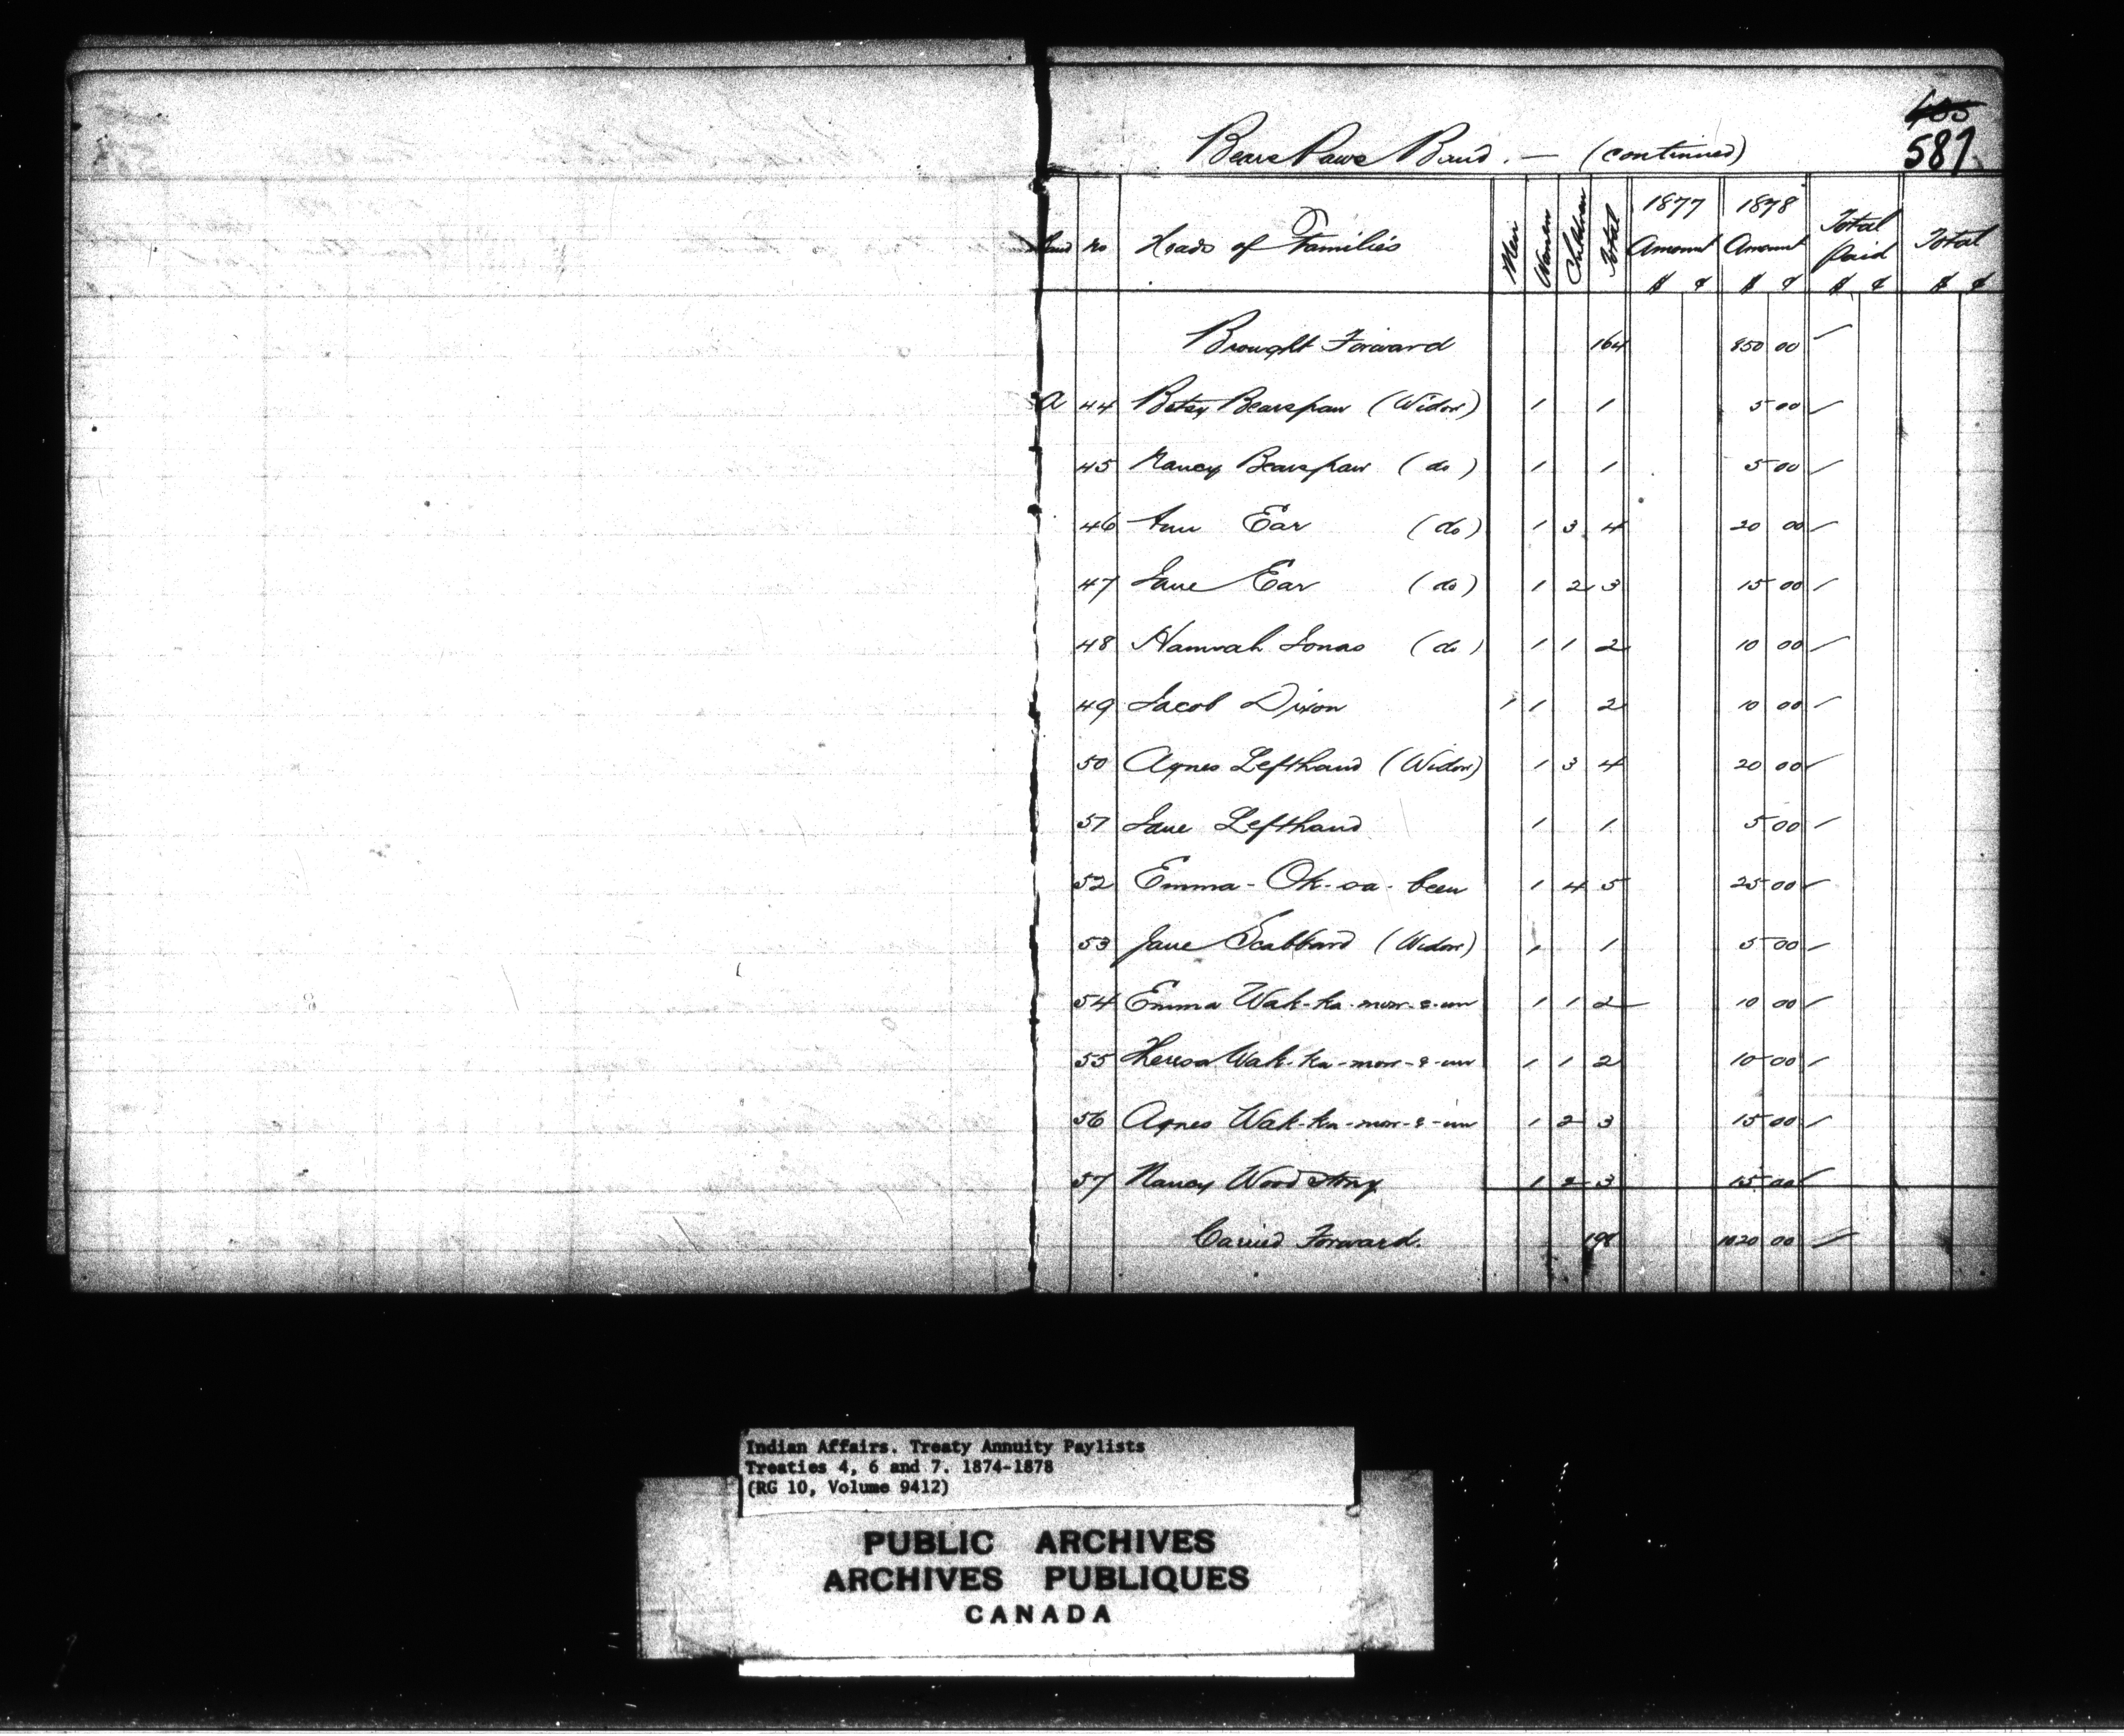 587
Bears Paws Band. — (continued)
Band No Heads of Families Men Women Children Total 1877 Amount $ ¢ 1878 Amount $ ¢ Total Paid $ ¢ Total $ ¢
Brought Forward 164 850 00
A 44 Betsy Bearspaw (Widow) 1 1 5 00
45 Nancy Bearspaw (do) 1 1 5 00
46 Ann Ear (do) 1 3 4 20 00
47 Jane Ear (do) 1 2 3 15 00
48 Hannah Jonas (do) 1 1 2 10 00
49 Jacob Dixon 1 1 2 10 00
50 Agnes Lefthand (Widow) 1 3 4 20 00
51 Jane Lefthand 1 1 5 00
52 Emma - Ok-oa-been 1 4 5 25 00
53 Jane Scabbard (Widow) 1 1 5 00
54 Emma Wak-ka-mon-e-un 1 1 2 10 00
55 Theresa Wak-ka-mon-e-un 1 1 2 10 00
56 Agnes Wak-ka-mon-e-un 1 2 3 15 00
57 Nancy Wood 1 2 3 15 00
Carried Forward. 198 1020 00
Indian Affairs. Treaty Annuity Paylists
Treaties 4, 6 and 7. 1874-1878
(RG 10, Volume 9412)
PUBLIC ARCHIVES
ARCHIVES PUBLIQUES
CANADA